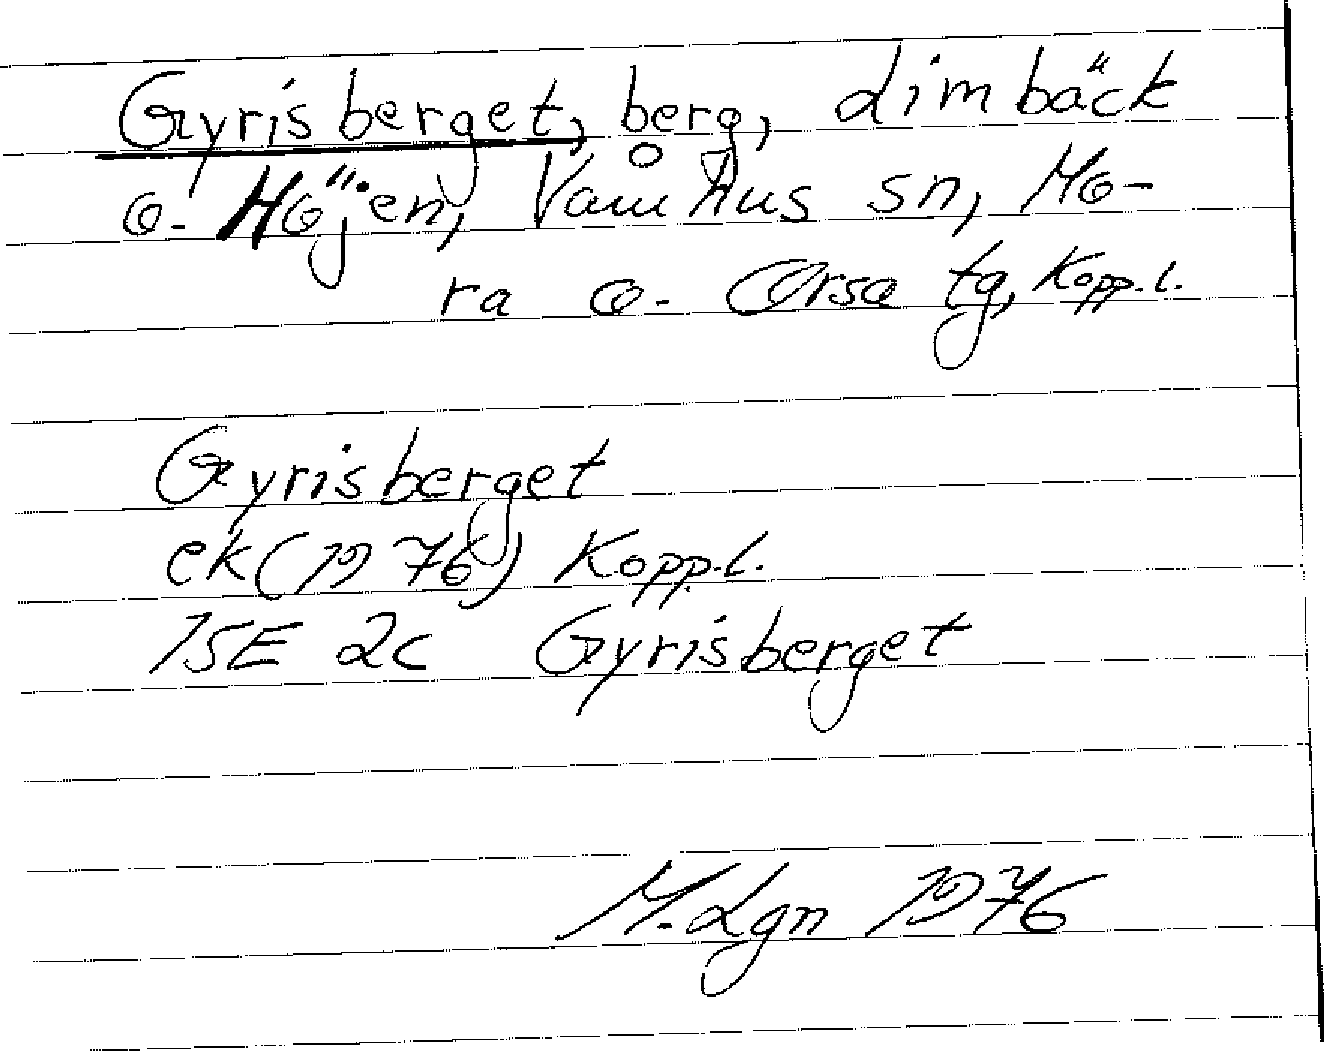 Gyrisberget, berg, Limbäck
o. Höjen, Våmhus sn, Mo-
ra o. Orsa tg, Kopp.l.
Gyrisberget
ek(1976) Kopp.l.
15E 2c Gyrisberget
M. Lgn 1976